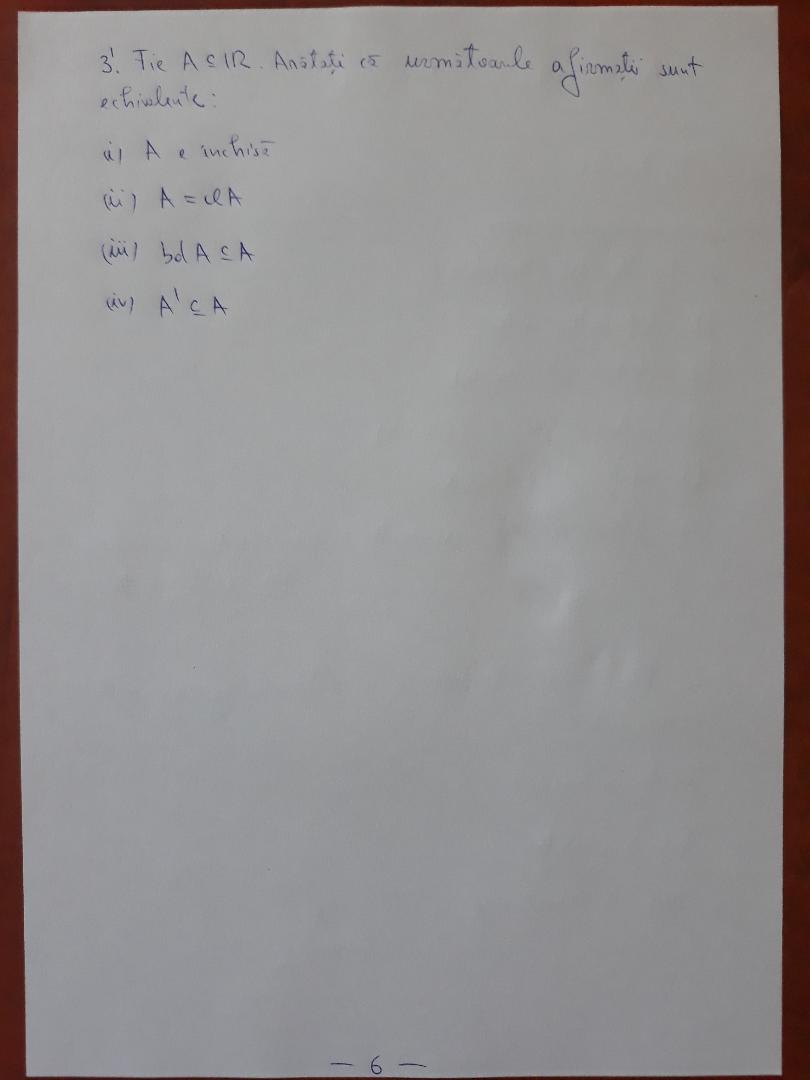 3'. Fie A ⊆ IR. Arătați că următoarele afirmații sunt
echivalente:
(i) A e închisă
(ii) A = cl A
(iii) bd A ⊆ A
(iv) A' ⊆ A
— 6 —